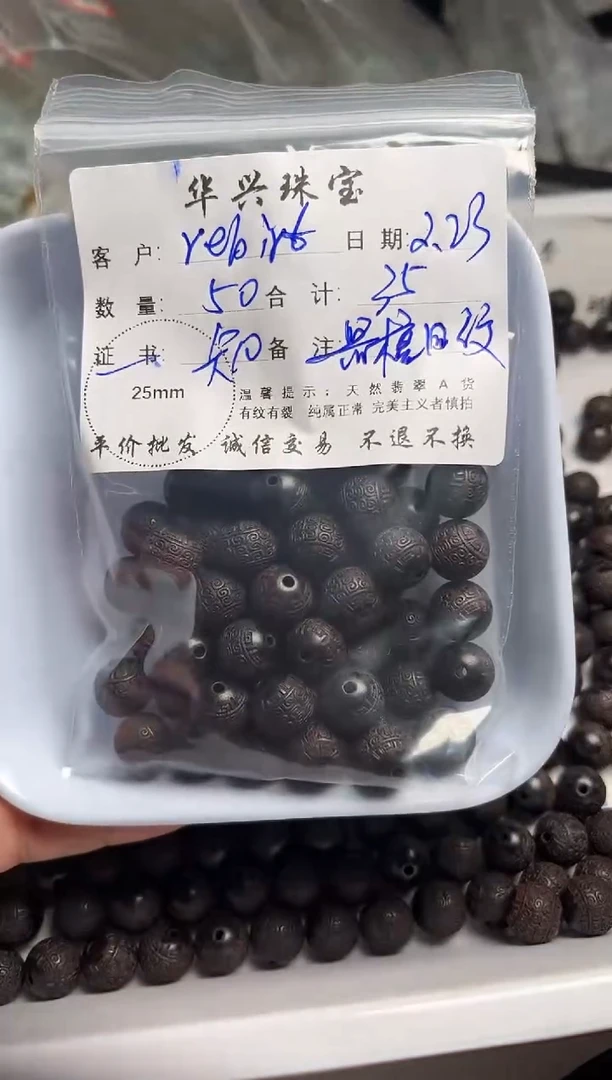 华兴珠宝
客户: rebirt 日期: 2.23
数量: 50 合计: 25
证书: 备注: 黑檀回纹
25mm
温馨提示: 天然翡翠A货
有纹有裂 纯属正常 完美主义者慎拍
平价批发 诚信交易 不退不换